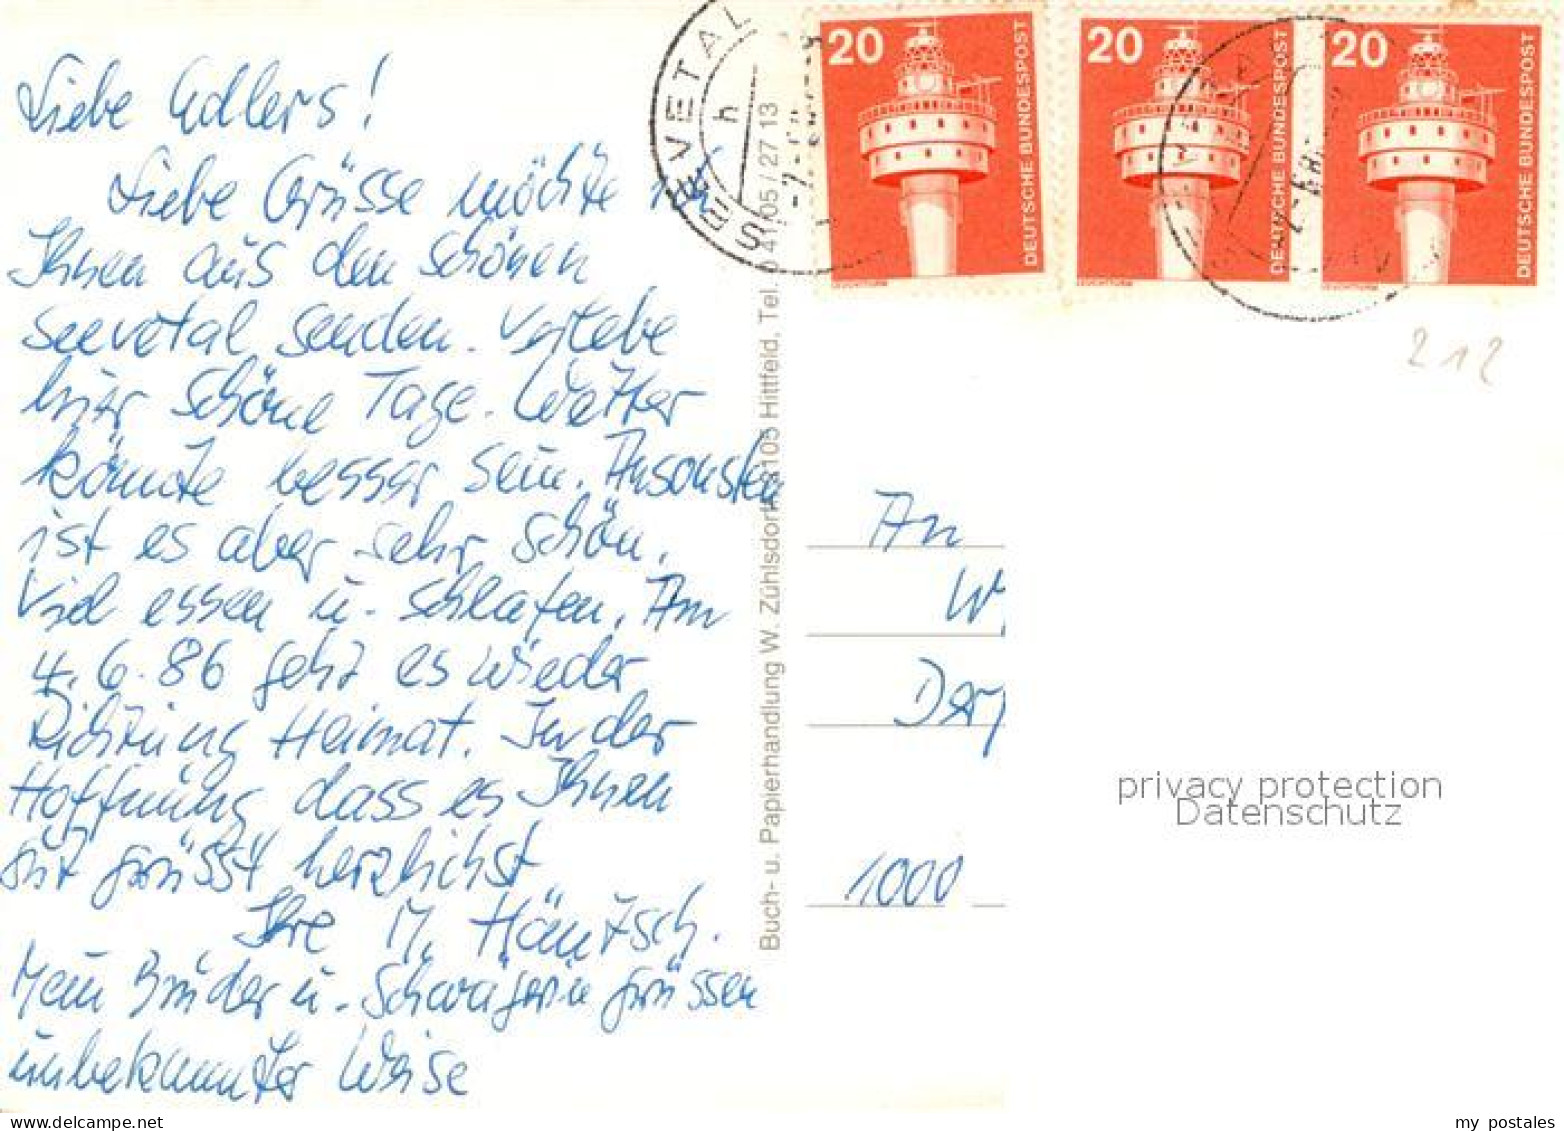 Liebe Adlers!
Liebe Grüsse möchte ich
Ihnen aus dem schönen
Seevetal senden. Verlebe
hier schöne Tage. Wetter
könnte besser sein. Ansonsten
ist es aber sehr schön.
Viel essen u. schlafen. Am
4.6.86 geht es wieder
Richtung Heimat. In der
Hoffnung dass es Ihnen
gut grüsst herzlichst
Ihre M. Häntzsch.
Mein Bruder u. Schwägerin grüssen
unbekannter Weise
SEEVETAL
h
20
DEUTSCHE BUNDESPOST
20
DEUTSCHE BUNDESPOST
20
DEUTSCHE BUNDESPOST
212
Buch- u. Papierhandlung W. Zühlsdorff, 2105 Hittfeld, Tel. 0 41 05 / 27 13
An
W.
Der
1000
privacy protection
Datenschutz
my postales